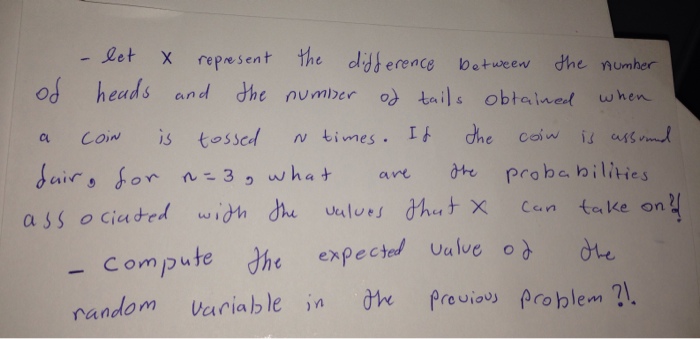 - let X represent the difference between the number
of heads and the number of tails obtained when
a coin is tossed n times. If the coin is assumd
fair, for n=3, what are the probabilities
associated with the values that X can take on?!
- compute the expected value of the
random variable in the previous problem?!.